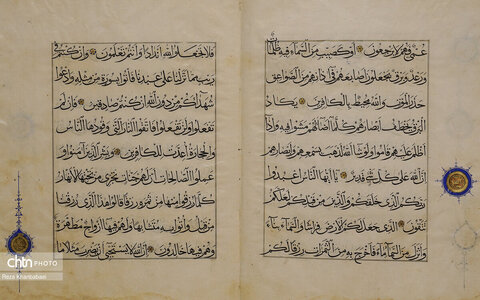 عمي فهم لا يرجعون او كصيب من السماء فيه ظلمات
ورعد وبرق يجعلون اصابعهم في اذانهم من الصواعق
حذر الموت والله محيط بالكافرين يكاد
البرق يخطف ابصارهم كلما اضاء لهم مشوا فيه واذا
اظلم عليهم قاموا ولو شاء الله لذهب بسمعهم وابصارهم
ان الله على كل شيء قدير يا ايها الناس اعبدوا
ربكم الذي خلقكم والذين من قبلكم لعلكم
تتقون الذي جعل لكم الارض فراشا والسماء بناء
وانزل من السماء ماء فاخرج به من الثمرات رزقا لكم
فلا تجعلوا لله اندادا وانتم تعلمون وان كنتم في
ريب مما نزلنا على عبدنا فاتوا بسورة من مثله وادعوا
شهداءكم من دون الله ان كنتم صادقين فان لم
تفعلوا ولن تفعلوا فاتقوا النار التي وقودها الناس
والحجارة اعدت للكافرين وبشر الذين امنوا و
عملوا الصالحات ان لهم جنات تجري من تحتها الانهار
كلما رزقوا منها من ثمرة رزقا قالوا هذا الذي رزقنا
من قبل واتوا به متشابها ولهم فيها ازواج مطهرة
وهم فيها خالدون ان الله لا يستحيي ان يضرب مثلا ما
chtn PHOTO
Reza Khanbabaei